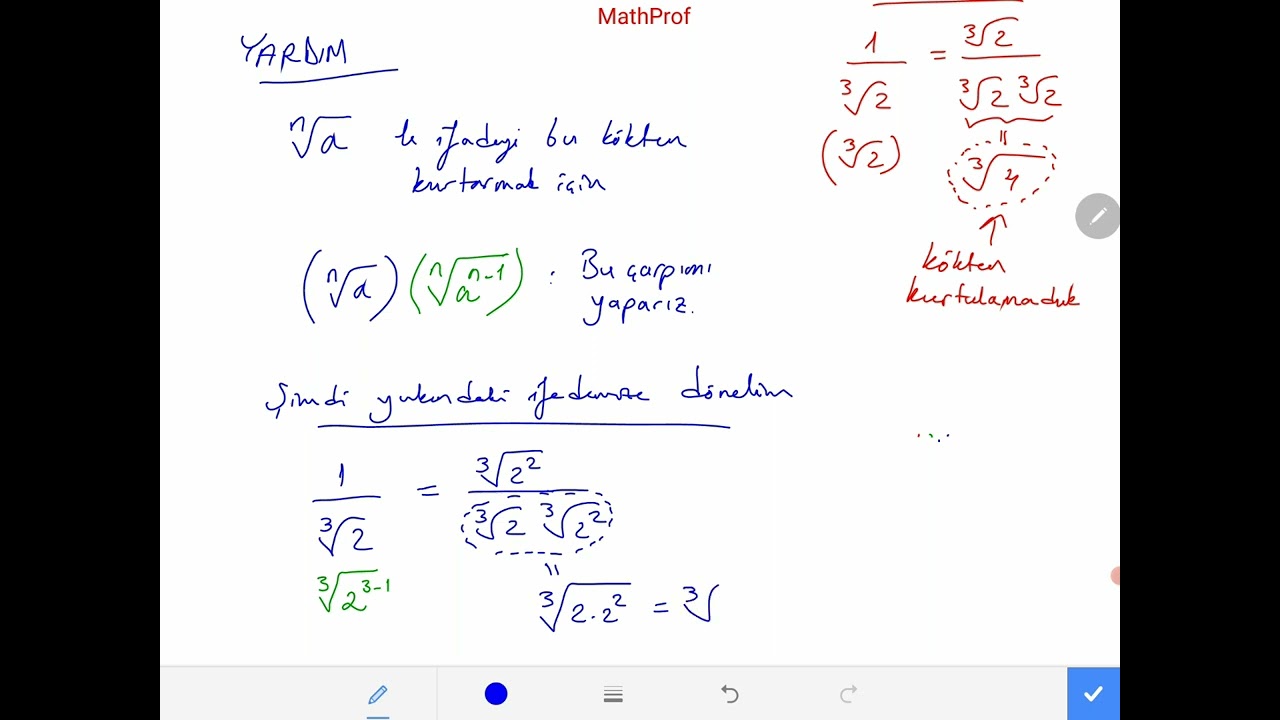 MathProf
YARDIM
ⁿ√a lı ifadeyi bu kökten
kurtarmak için
(ⁿ√a)(ⁿ√aⁿ⁻¹) : Bu çarpımı
yaparız.
Şimdi yukarıdaki ifademize dönelim
1/∛2 = ∛2²/(∛2 ∛2²)
∛2³⁻¹
=
∛2·2² = ∛
1/∛2 = ∛2/(∛2 ∛2)
(∛2)
=
∛4
kökten
kurtulamadık